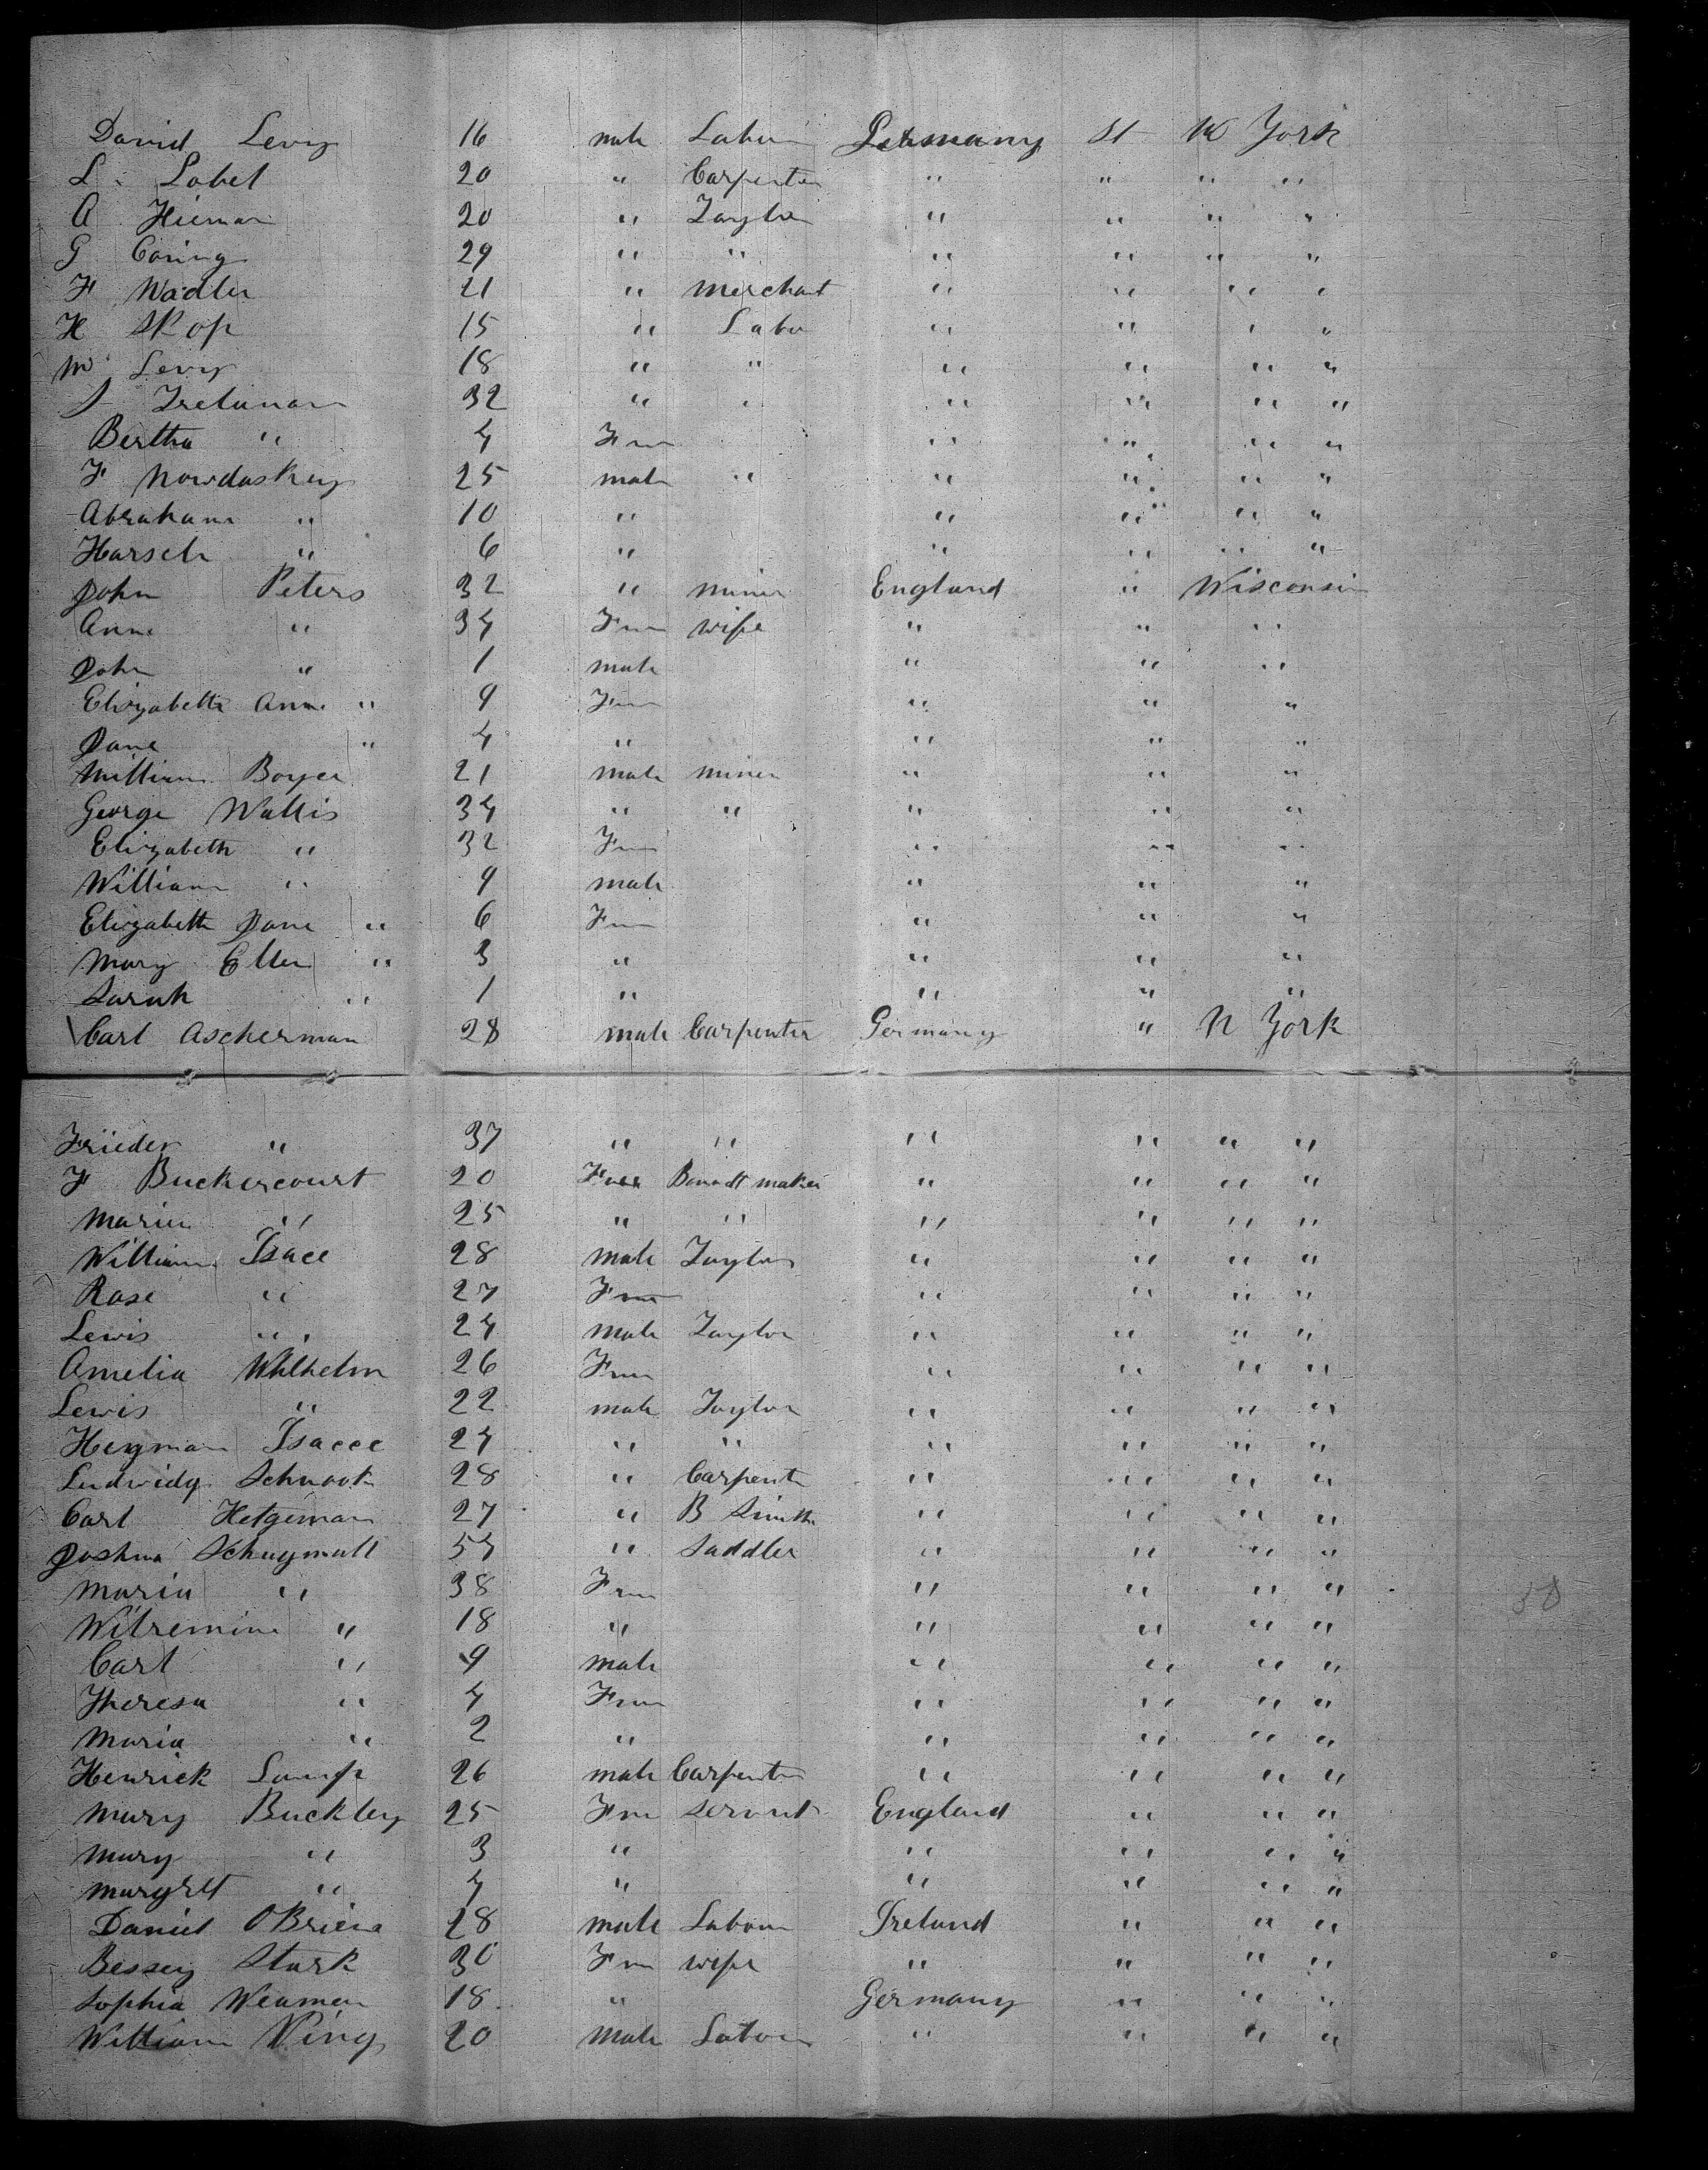 David Levy 16 male Labor Germany St N York
L. Lobel 20 " Carpenter " " " "
A Hieman 20 " Taylor " " " "
G Coring 29 " " " " " "
F Wadler 21 " Merchant " " " "
H Skop 15 " Labor " " " "
M Levy 18 " " " " " "
J Tretunan 32 " " " " " "
Bertha " 4 Fem " " " "
F Nowdaskey 25 male " " " " "
Abraham " 10 " " " " "
Harsch " 6 " " " " "
John Peters 32 " miner England " Wisconsin
Anne " 34 Fem wife " " "
John " 1 male " " "
Elizabeth Anne " 9 Fem " " "
Jane " 4 " " " "
William Boyer 21 male miner " " "
George Wallis 34 " " " " "
Elizabeth " 32 Fem " " "
William " 9 male " " "
Elizabeth Jane " 6 Fem " " "
Mary Ellen " 3 " " " "
Sarah " 1 " " " "
Carl Ascherman 28 male Carpenter Germany " N York
Frieder " 37 " " " " " "
F Buckercourt 20 Fem maker " " " "
Maria " 25 " " " " " "
William Isace 28 male Taylor " " " "
Rose " 27 Fem " " " "
Lewis " 24 male Taylor " " " "
Amelia Whilhelm 26 Fem " " " "
Lewis " 22 male Taylor " " " "
Heyman Isacee 24 " " " " " "
Ludwidg Schnook 28 " Carpent " " " "
Carl Hetgeman 27 " B Smith " " " "
Joshua Schugmall 54 " Saddler " " " "
Maria " 38 Fem " " " "
Wilremine " 18 " " " " "
Carl " 9 male " " " "
Theresa " 4 Fem " " " "
Maria " 2 " " " " "
Henrick Lampe 26 male Carpenter " " " "
Mary Buckley 25 Fem Servant England " " "
Mary " 3 " " " " "
Margret " 4 " " " " "
Daniel OBrien 28 male Labour Ireland " " "
Bessey Stark 30 Fem wife " " " "
Sophia Weumen 18 " Germany " " "
William Ping 20 Male Labour " " " "